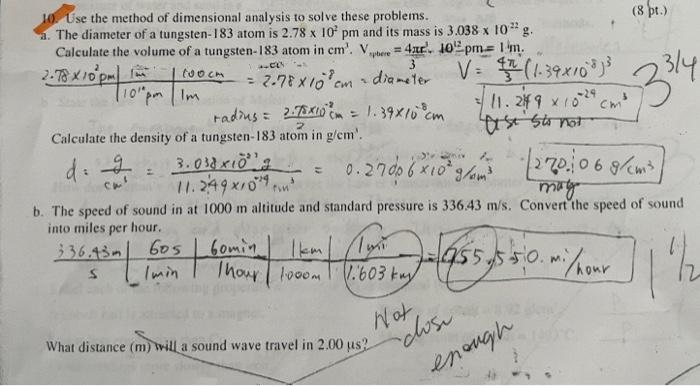 10. Use the method of dimensional analysis to solve these problems. (8 pt.)
a. The diameter of a tungsten-183 atom is 2.78 x 10² pm and its mass is 3.038 x 10⁻²² g.
Calculate the volume of a tungsten-183 atom in cm³. V sphere = 4πr³/3. 10¹² pm = 1 m.
2.78 x 10² pm | 1m | 100 cm = 2.78 x 10⁻⁸ cm = diameter V = 4π/3 (1.39x10⁻⁸)³ 3 3/4
10¹² pm | 1m = 11.249 x 10⁻²⁴ cm³
radius = 2.78x10⁻⁸ cm / 2 = 1.39x10⁻⁸ cm
Calculate the density of a tungsten-183 atom in g/cm³.
d = g/cm³ = = 0.27006 x 10² g/cm³ 270.06 g/cm³
b. The speed of sound in at 1000 m altitude and standard pressure is 336.43 m/s. Convert the speed of sound
into miles per hour.
336.43m | 60s | 60min | 1km | 1mi = 755.550. mi/hour 1 1/2
s | 1min | 1hour | 1000m | 1.603 km
Not close enough
What distance (m) will a sound wave travel in 2.00 µs?